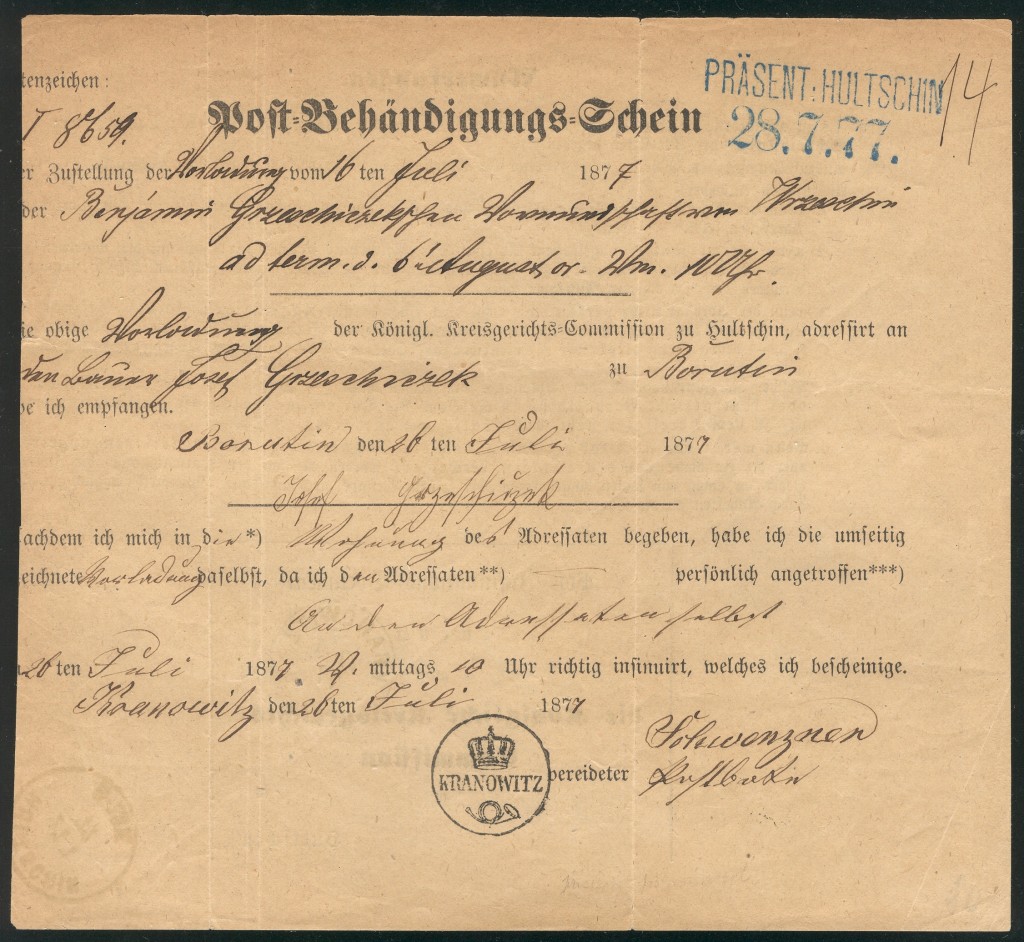 tenzeichen:
PRÄSENT: HULTSCHIN
14
I 8659.
Post-Behändigungs-Schein
28.7.77.
er Zustellung der Vorladung vom 16 ten Juli 1877
der Benjamin Grzeschiczekschen Vormundschaft von
ad term. d. 6t August cr. Vm. 10 Uhr.
ie obige Vorladung der Königl. Kreisgerichts-Commission zu Hultschin, adressirt an
den Bauer Josef Grzeschiczek zu Borutin
be ich empfangen.
Borutin den 26 ten Juli 1877
Josef Grzeschiczek
achdem ich mich in die *) Wohnung des Adressaten begeben, habe ich die umseitig
eichnete Vorladung daselbst, da ich den Adressaten **) — persönlich angetroffen ***)
An den Adressaten selbst
26 ten Juli 1877 V. mittags 10 Uhr richtig insinuirt, welches ich bescheinige.
Kranowitz den 26 ten Juli 1877
KRANOWITZ
bereideter
Postbote